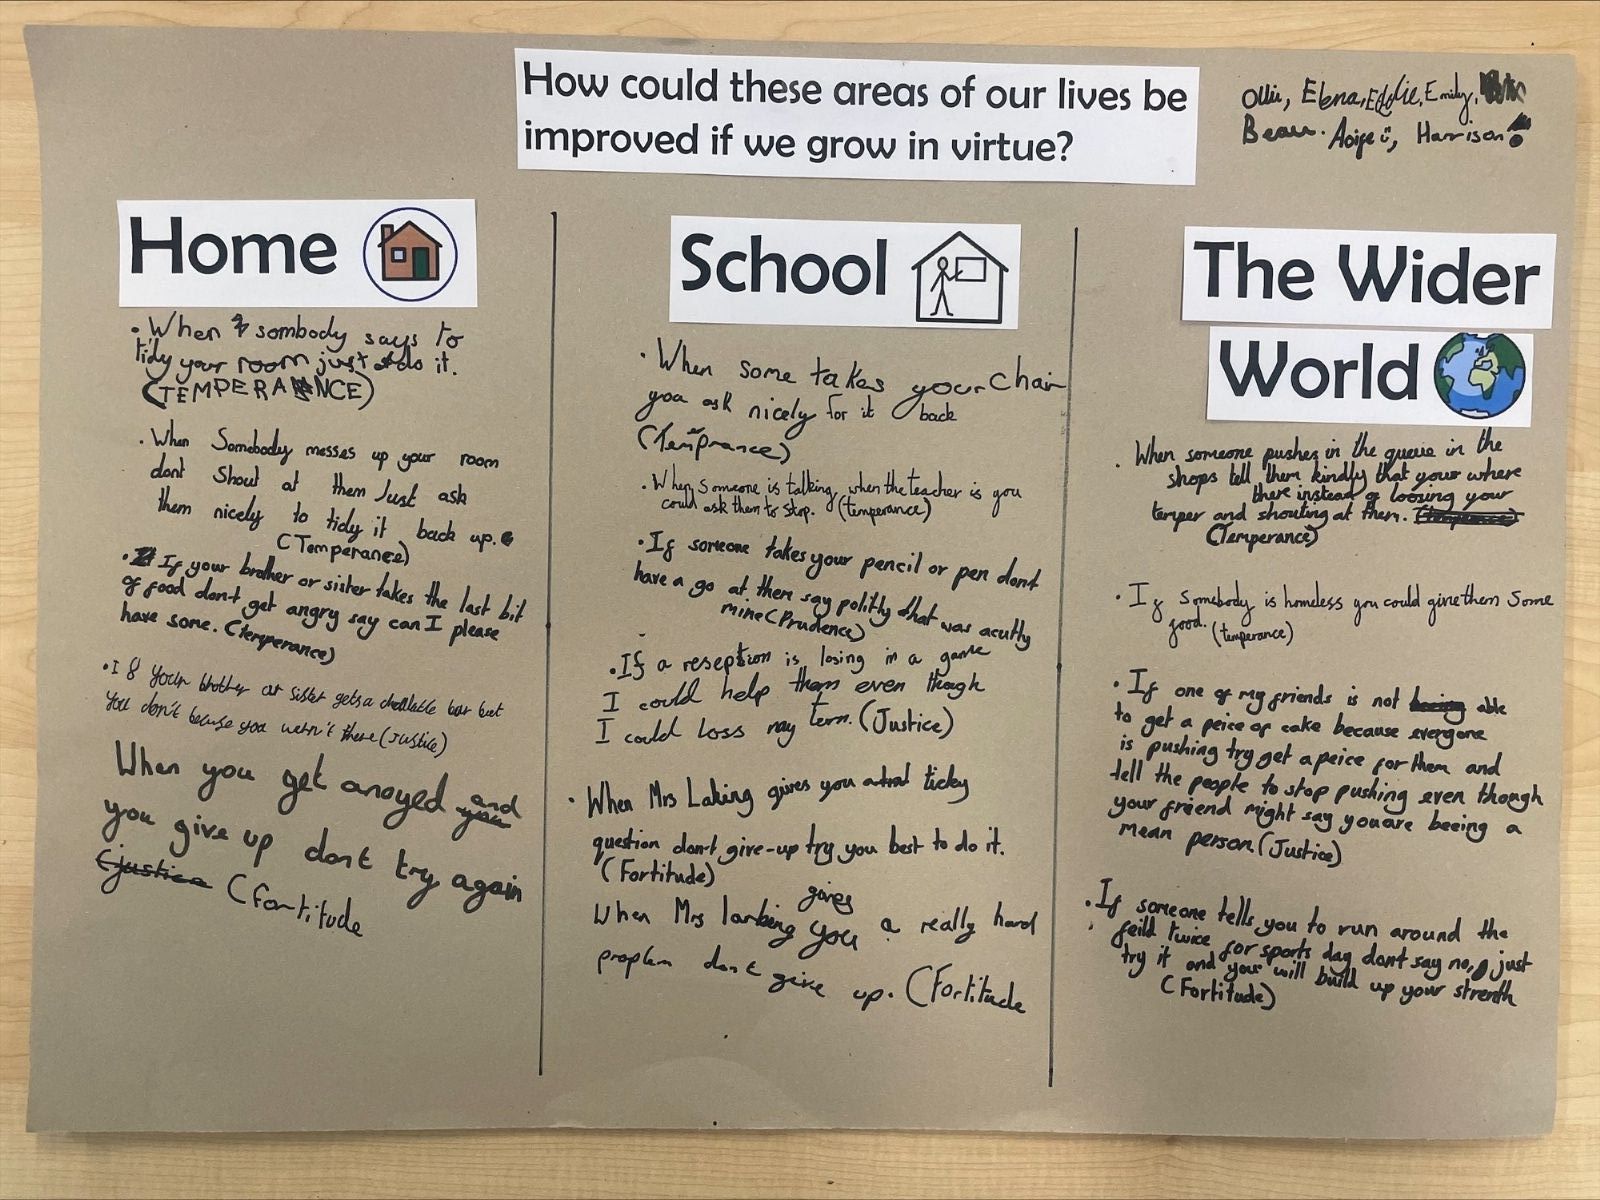 How could these areas of our lives be
improved if we grow in virtue?
Ollie, Elena, Eddie, Emily,
Beau. Aoife, Harrison!
Home
• When sombody says to
tidy your room just do it.
(TEMPERANCE)
• When Somebody messes up your room
dont Shout at them Just ask
them nicely to tidy it back up.
(Temperance)
• If your brother or sister takes the last bit
of food don't get angry say can I please
have some. (temperance)
• If your brother or sister gets a bar but
you don't because you wern't there (justice)
When you get anoyed and
you give up dont try again
(justice (fortitude
School
• When some takes your chair
you ask nicely for it back
(Temprance)
• When Someone is talking when the teacher is you
could ask them to stop. (temperance)
• If someone takes your pencil or pen dont
have a go at them say politly that was acutly
mine (Prudence)
• If a reseption is losing in a game
I could help them even though
I could loss my tern. (Justice)
• When Mrs Laking gives you a ticky
question don't give-up try you best to do it.
(Fortitude)
When Mrs gives you a really hard
proplem dont give up. (Fortitude
The Wider
World
• When someone pushes in the queue in the
shops tell them kindly that your where
there instead of loosing your
temper and shouting at them. (temperance)
(Temperance)
• If Somebody is homeless you could give them some
food. (temperance)
• If one of my friends is not being able
to get a peice of cake because everyone
is pushing try get a peice for them and
tell the people to stop pushing even though
your friend might say you are beeing a
mean person. (Justice)
• If someone tells you to run around the
feild twice for sports day dont say no, just
try it and you will build up your strenth
(Fortitude)